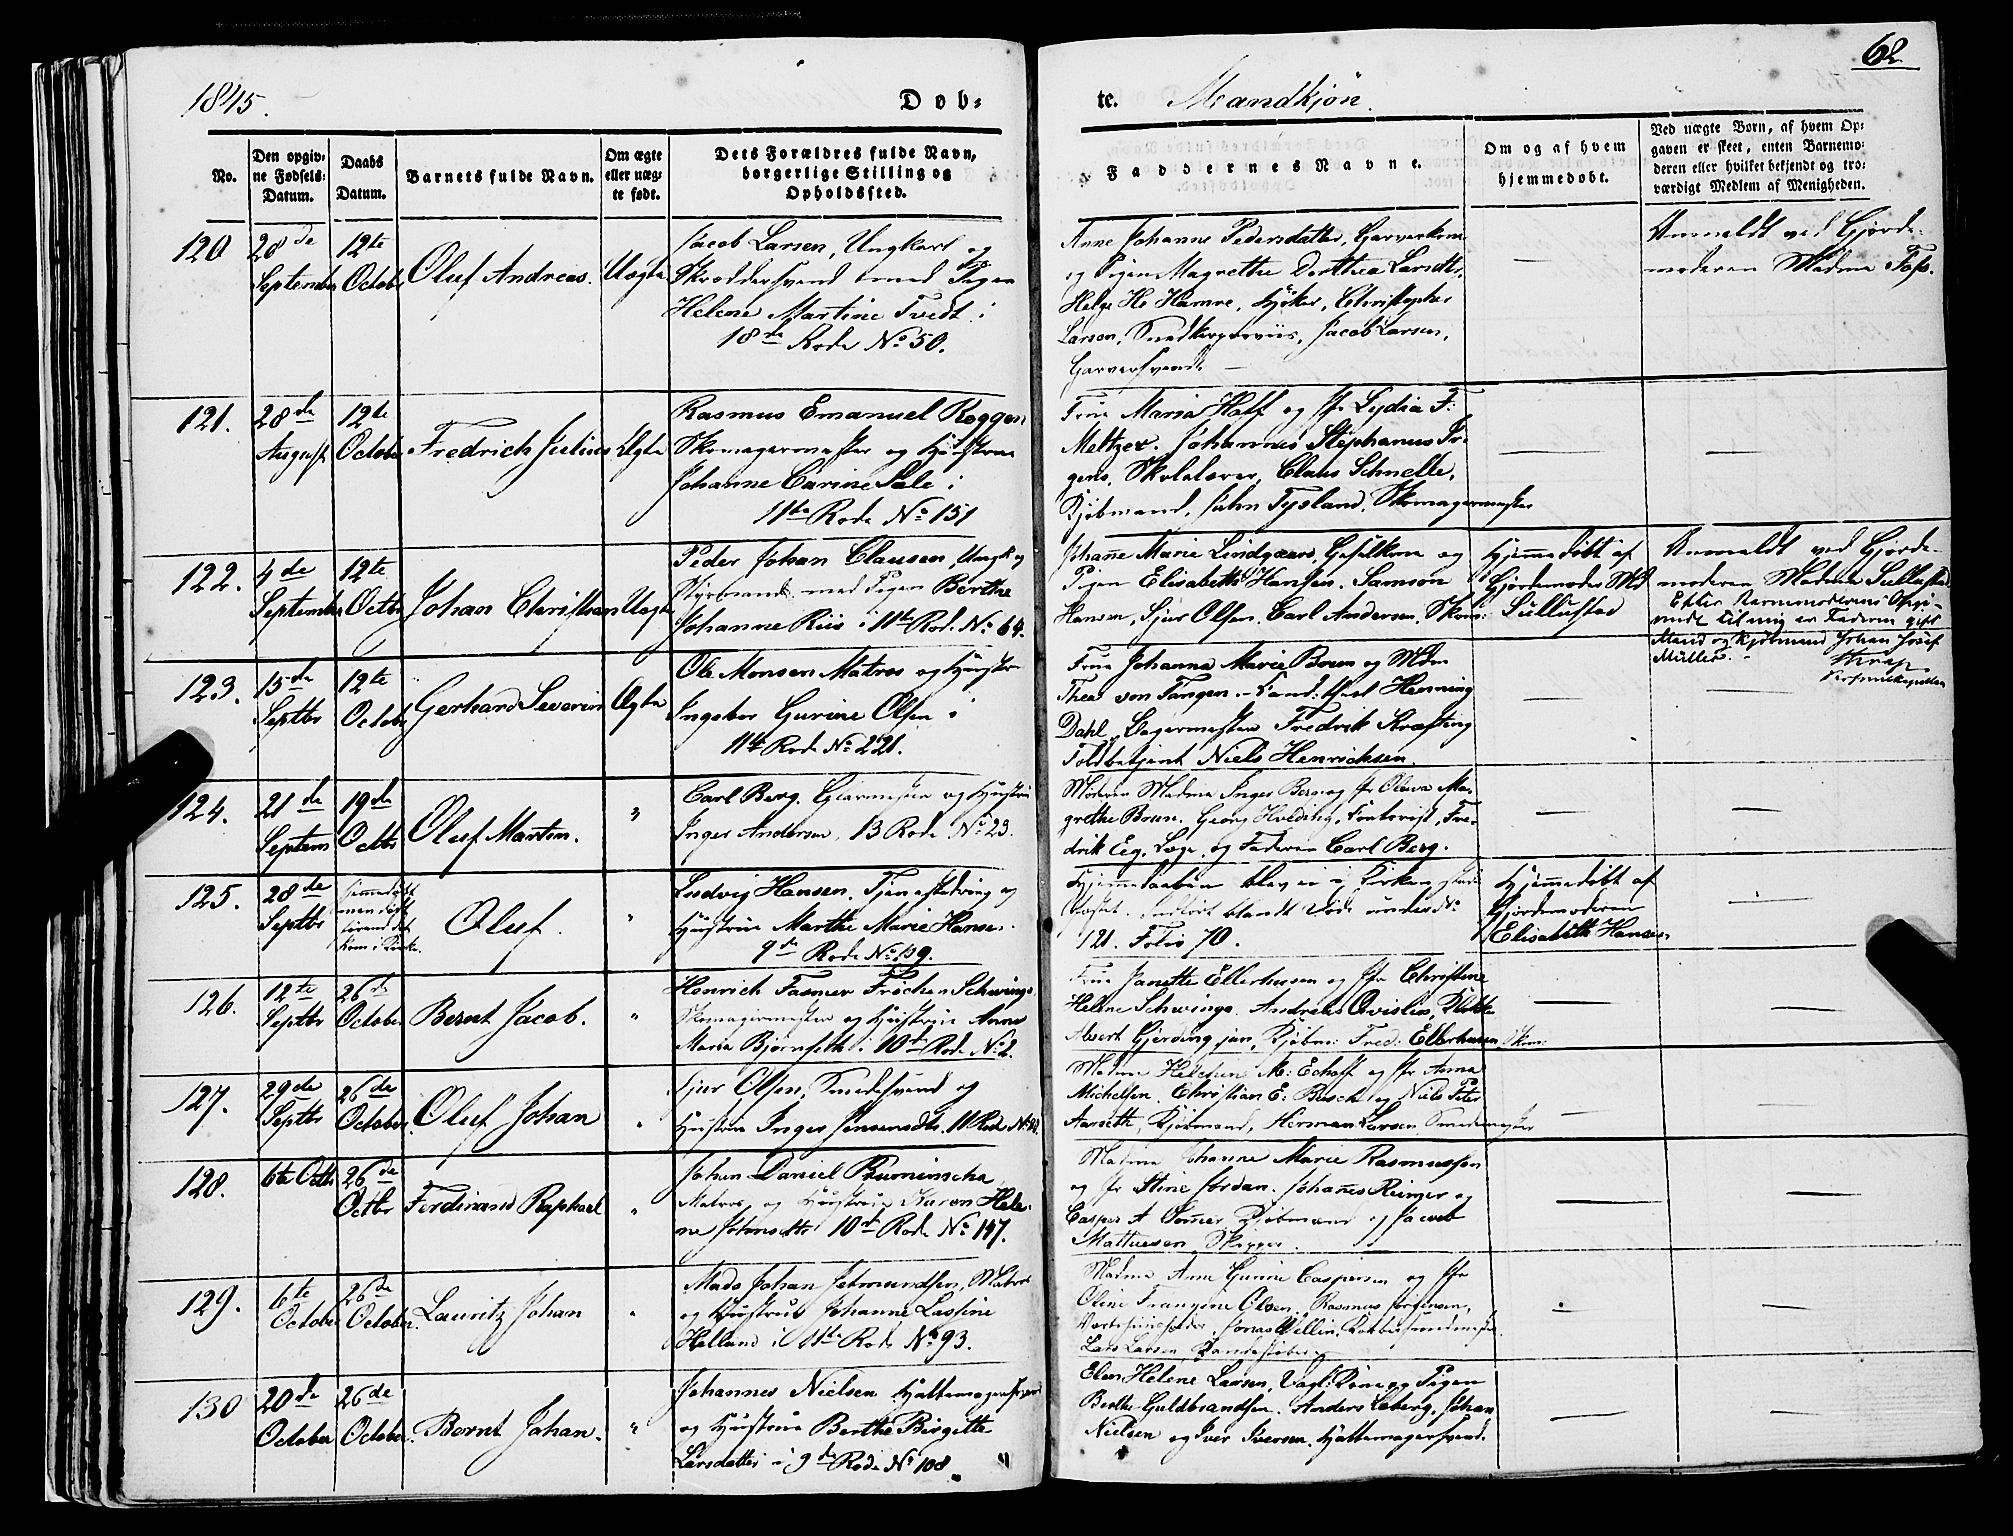 1845.
Døb-
te.
Mandkjøn.
62
No.
Den opgiv-
ne Fødsels-
Datum.
Daabs
Datum.
Barnets fulde Navn.
Om ægte
eller uæg-
te født.
Dets Forældres fulde Navn,
borgerlige Stilling og
Opholdssted.
Faddernes Navne.
Om og af hvem
hjemmedøbt.
Ved uægte Børn, af hvem Op-
gaven er skeet, enten Barnemo-
deren eller hvilket bekjendt og tro-
værdigt Medlem af Menigheden.
120
28de
September
12te
Octobr
Oluf Andreas.
Uægte
Jacob Larsen, Ungkarl og
Skræddersvend med Pigen
Helene Martine Tvedt i
18de Rode No 50.
Anne Johanne Pedersdatter, Garverkone
og Pigen Magrethe Dorthea Larsdtr,
Helge He Hamre, Christopher
Larsen, Jacob Larsen,
Garversvend.
Anmeldt ved Gjorde-
moderen Madme Foss.
121.
28de
August
12te
October
Fredrich Julius
Ægte
Rasmus Emanuel Roggen
Skomagermester og Hustrue
Johanne Carine Sale i
11te Rode No 151
Frue Maria Hoff og Jfr Lydia F:
Meltzer. Johannes Stephanus Ir-
gens, Skolelærer, Claus Schnelle,
Kjøbmand, John Tysland, Skomagermester
122.
4de
September
12te
Octbr
Johan Christian
Uægte
Peder Johan Clausen, Ungk. og
Styrmand med Pigen Berthe
Johanne Riis i 11te Rode No 64.
Johanne Marie Lindgaard, og
Pigen Elisabeth Hansen. Samson
Hansen, Sjur Olsen, Carl Andersen, Skom:
Hjemmedøbt af
Gjordemoder Md
Sullustad
Anmeldt ved Gjorde-
moderen Madme Sullustad
Efter Barnemoderens Opgi-
vende til mig er Faderen gift
Mand og Kjøbmand Johan Josef
Müller.
123.
15de
Septbr
12te
Octobr
Gerhard Severin
Ægte
Ole Monsen Matros og Hustrue
Ingebor Gurine Olsen i
11te Rode No 221.
Frue Johanna Marie Bruun og Mdm
Thea von Tangen. Henning
Dahl, Bagermester Fredrik Kræfting
Toldbetjent Niels Henrichsen.
124.
21de
Septemr
19de
Octbr
Oluf Martin.
"
Carl Berg, Glarmester og Hustrue
Inger Andersen, 13 Rode No 23.
Moderen Madme Inger Berg og Jfr Olava Ma-
grethe Bruun. Georg Hveding, Contorist, Fre-
drik Eeg, Læge, og Faderen Carl Berg.
125.
28de
Septbr
Hjemmedøbt
men døde
førend det
kom i Kirke.
Oluf.
"
Ludvig Hansen, Tjenestedreng og
Hustrue Marthe Marie Hansen.
9de Rode No 109.
Hjemmedaaben blev ei i Kirken stad-
fæstet. Indført blandt Døde under No
121. Folio 70.
Hjemmedøbt af
Gjordemoderen
Elisabeth Hansen
126.
12te
Septbr
26de
October
Bernt Jacob.
"
Henrich Fasmer Frøchen Schwings
Skomagermester og Hustrue Anne
Maria Bjørnseth i 10de Rode No 2.
Frue Janette Ellerhusen og Jfr Christine
Helene Schwings. Andreas Qvislin,
Albert Gjerding jun, Kjøbm: Fred: Ellerhusen, Skom:
127.
29de
Septbr
26de
October.
Oluf Johan
"
Sjur Olsen, Smedesvend og
Hustrue Inger Jensensdtr. 11 Rode No
Madme M: Echoff og Jfr Anna
Michelsen. Christian E: Busch og Niels Peter
Aarseth, Kjøbmand, Herman Larsen Smedemester
128.
6te Octbr
26de
Octbr
Ferdinand Raphael
"
Johan Daniel
Matros og Hustrue Karen Hele-
ne Johnsdtr 10de Rode No 147.
Madme Johanne Marie Rasmussen
og Jfr Stine Jordan. Johannes Reimer og
Casper A Sømer, Kjøbmænd og Jacob
Mathiesen Skipper.
129.
6te
October
26de
October.
Lauritz Johan
"
Mads Johan Jetmundsen, Matros
og Hustrue Johanne Lassine
Helland i 11te Rode No 93.
Madme Anne Gurine Caspersen og Jfr
Oline Frangine Olsen. Rasmus Jørgensen,
Jonas Wellin, Kobbersmedmester,
Lars Larsen,
130
20de
October
26de
October.
Bernt Johan.
"
Johannes Nielsen Hattemagersvend
og Hustrue Berthe Birgitte
Larsdatter i 9de Rode No 108.
Elen Helene Larsen, og Pigen
Berthe Guldbrandsen. Anders Leberg, Johan
Nielsen og Iver Iversen, Hattemagersvend.